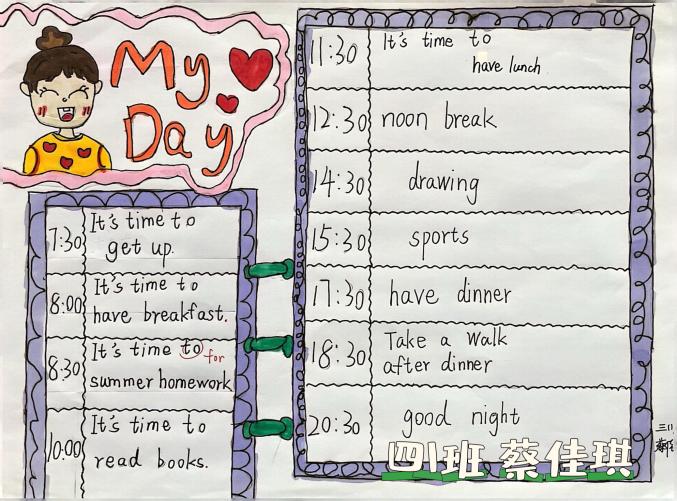 My
Day
7:30
It's time to
get up.
8:00
It's time to
have breakfast.
8:30
It's time to for
summer homework
10:00
It's time to
read books.
11:30
It's time to
have lunch
12:30
noon break
14:30
drawing
15:30
sports
17:30
have dinner
18:30
Take a walk
after dinner
20:30
good night
四1班 蔡佳琪